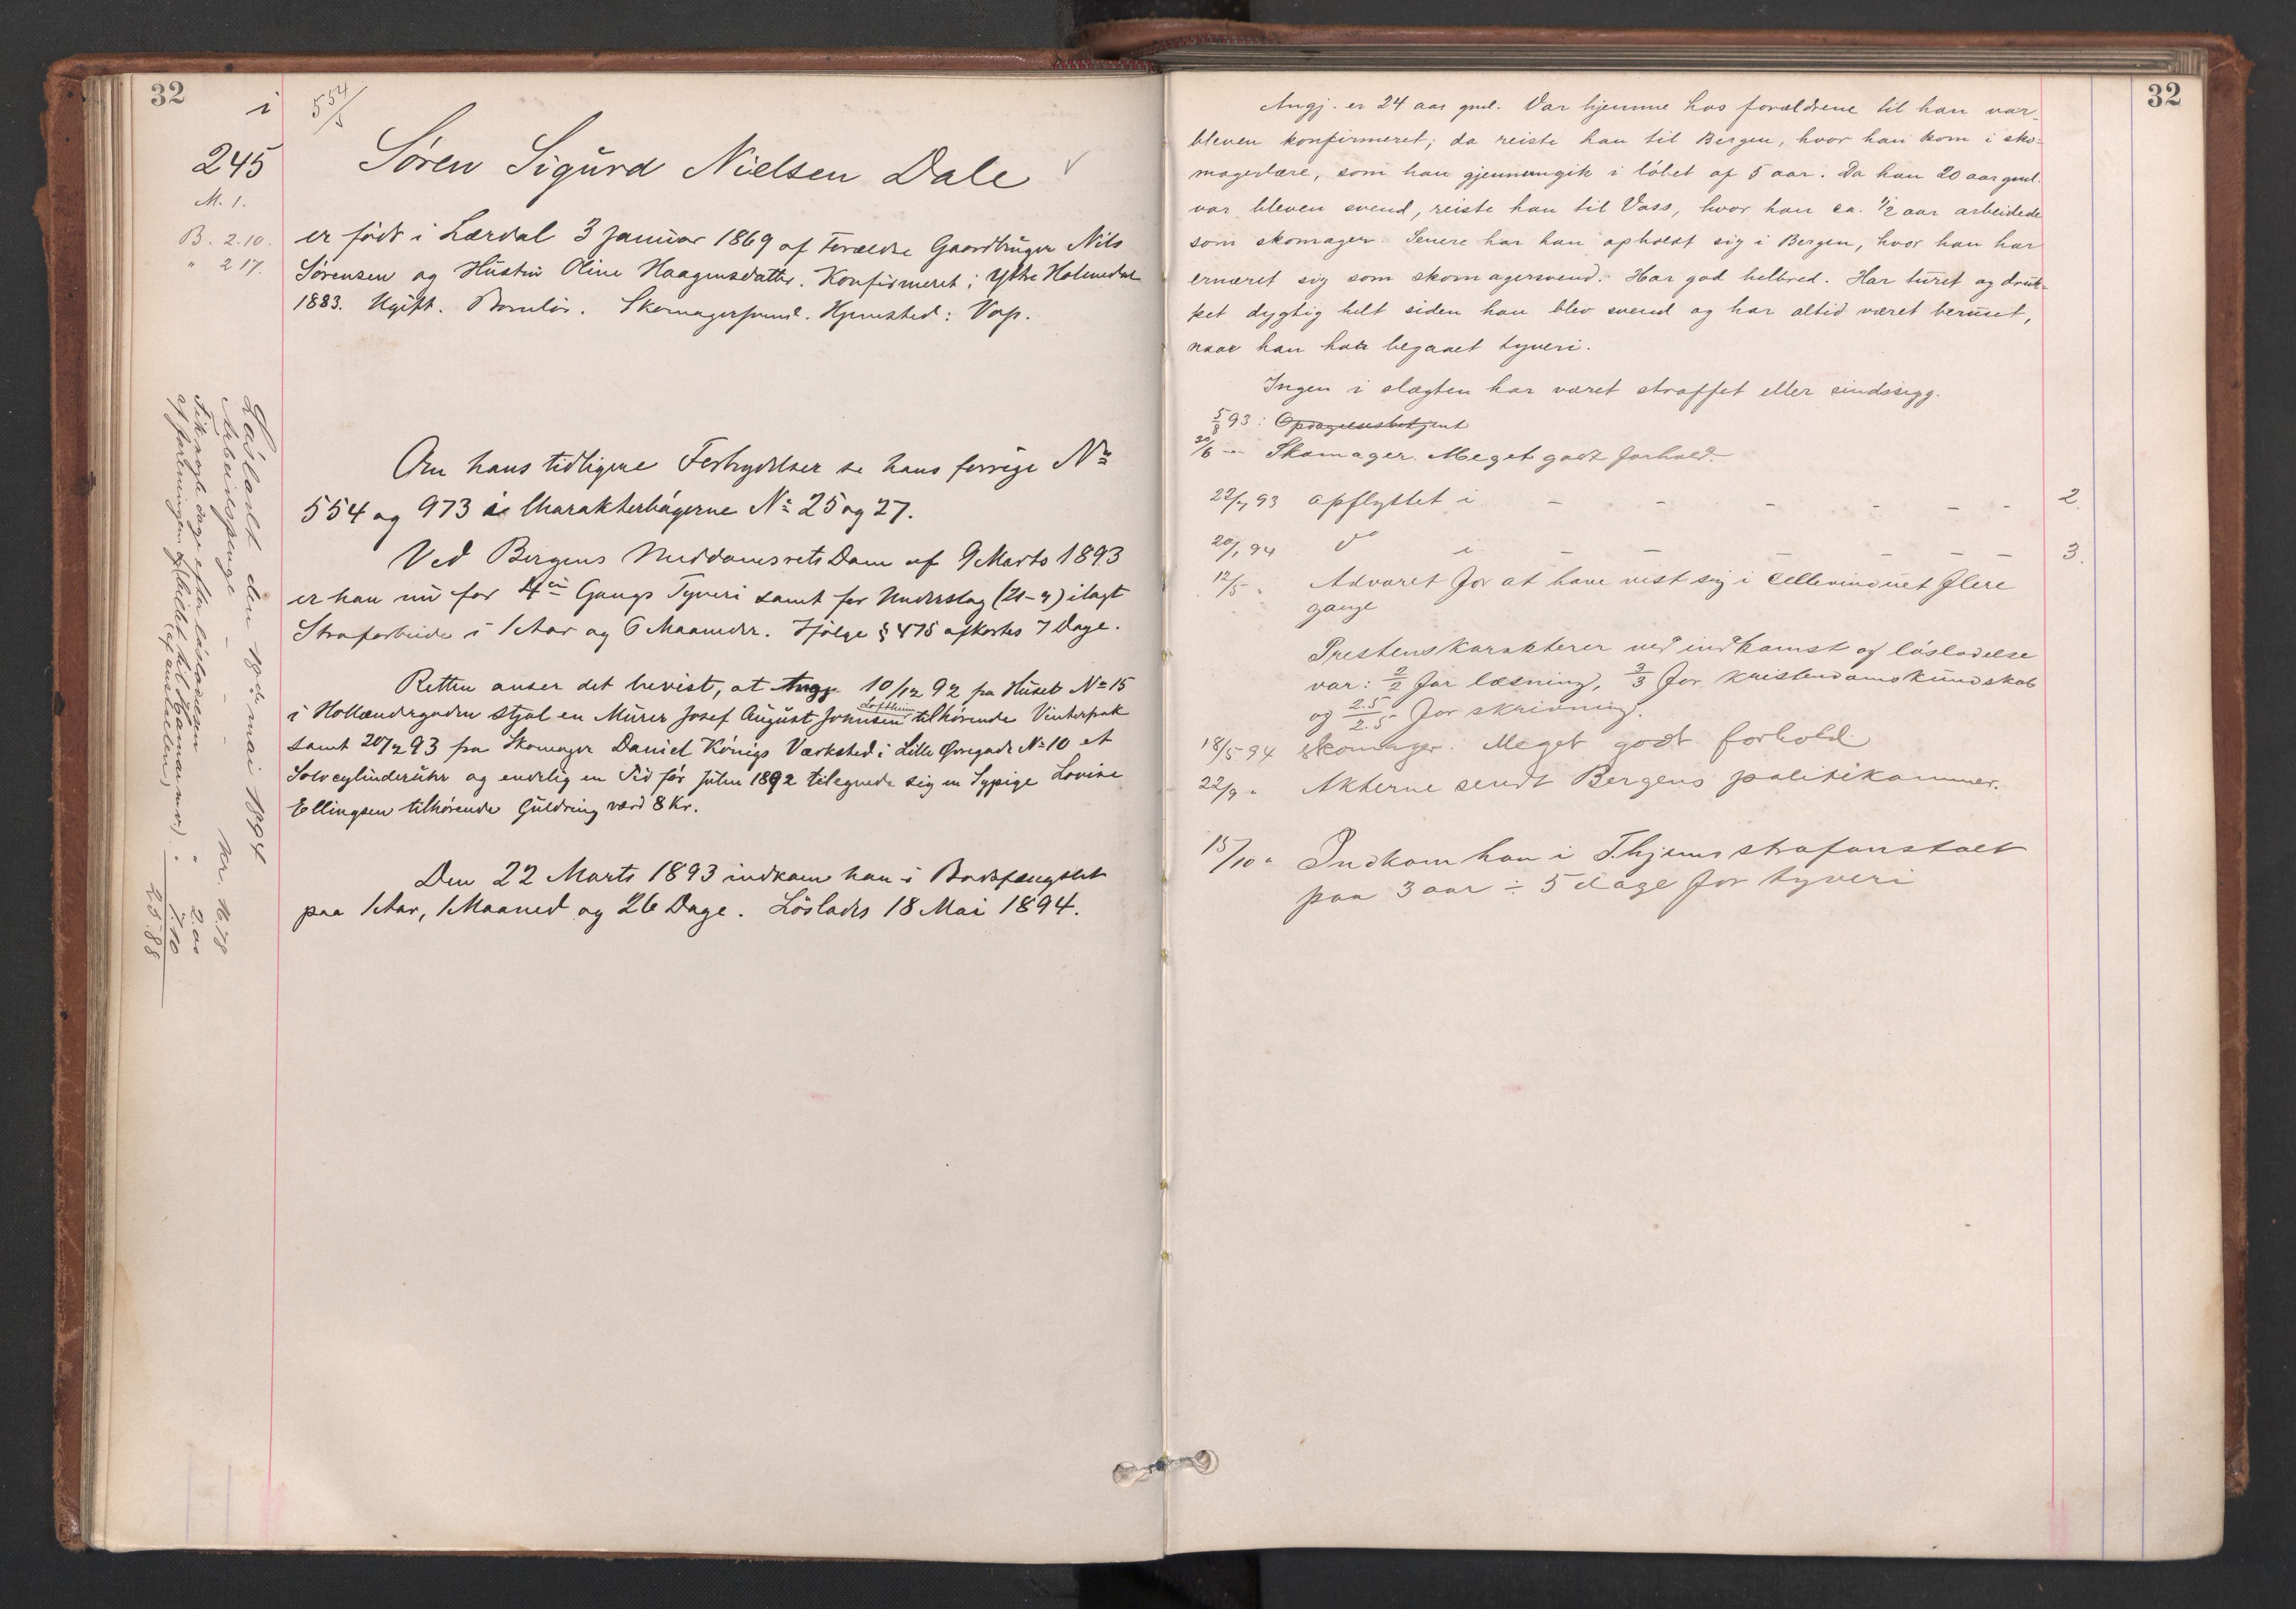 32
i
554/5
245
Søren Sigurd Nielsen Dale
M. 1.
B. 2.10.
" 2 17.
er født i Lærdal 3 Januar 1869 af Forældre Gaardbruger Nils
Sørensen og Hustru Oline Haagensdatter. Konfirmeret i Ystre Holmedal
1883. Ugift. Barnløs. Skomagersvend. Hjemsted: Vos.
Om hans tidligere Forbrydelser se hans forrige No
554 og 973 i Charakterbøgerne No 25 og 27.
Ved Bergens Meddomsrets Dom af 9 Marts 1893
er han nu for 4de Gangs Tyveri samt for Underslag (21-9) ilagt
Strafarbeide i 1 Aar og 6 Maaneder. Ifølge § 475 afkortes 7 Dage.
Retten anser det bevist, at Angj. 10/12 92 fra Huset No 15
i Hollændergaden stjal en Murer Josef August Johnsen Loftheim tilhørende Vinterfrak
samt 20/2 93 fra Skomager Daniel Königs Værksted i Lille Øvregade No 10 et
Sølvcylinderuhr og endelig en Tid før Julen 1892 tilegnede sig en Sypige Lovise
Ellingsen tilhørende Guldring værd 8 Kr.
Den 22 Marts 1893 indkom han i Bodsfængslet
paa 1 Aar, 1 Maaned og 26 Dage. Løslades 18 Mai 1894.
Løsladt den 18de mai 1894
Arbeidspenge - - - Kr. 16.78
Fik nogle dage efter løsladelsen " 2.00
af foreningen og (billet til Hamar m.v.) " 7.10
(af anstalten)
25.88
32
Angj. er 24 aar gml. Var hjemme hos forældrene til han var
bleven konfirmeret; da reiste han til Bergen, hvor han kom i sko-
magerlære, som han gjennemgik i løbet af 5 aar. Da han 20 aar gml.
var bleven svend, reiste han til Voss, hvor han ca. 1/2 aar arbeidede
som skomager. Senere har han opholdt sig i Bergen, hvor han har
ernæret sig som skomagersvend. Har god helbred. Har turet og druk-
ket dygtig helt siden han blev svend og har altid været beruset,
naar han har begaaet tyveri.
Ingen i slægten har været straffet eller sindssyg.
5/8 93: Opdagelsesbetjent
30/6 - Skomager. Meget godt forhold.
22/7 93 opflyttet i - - - - - - 2.
20/1 94 do i - - - - - - 3.
12/5 " Advaret for at have vist sig i cellevinduet flere
gange
Prestens karakterer ved indkomst og løsladelse
var: 2/2 for læsning, 3/3 for kristendomskundskab
og 2.5/2.5 for skrivning.
18/5 94 skomager. Meget godt forhold.
22/9 " Akterne sendt Bergens politikammer.
15/10 " Indkom han i T.hjems strafanstalt
paa 3 aar ÷ 5 dage for tyveri